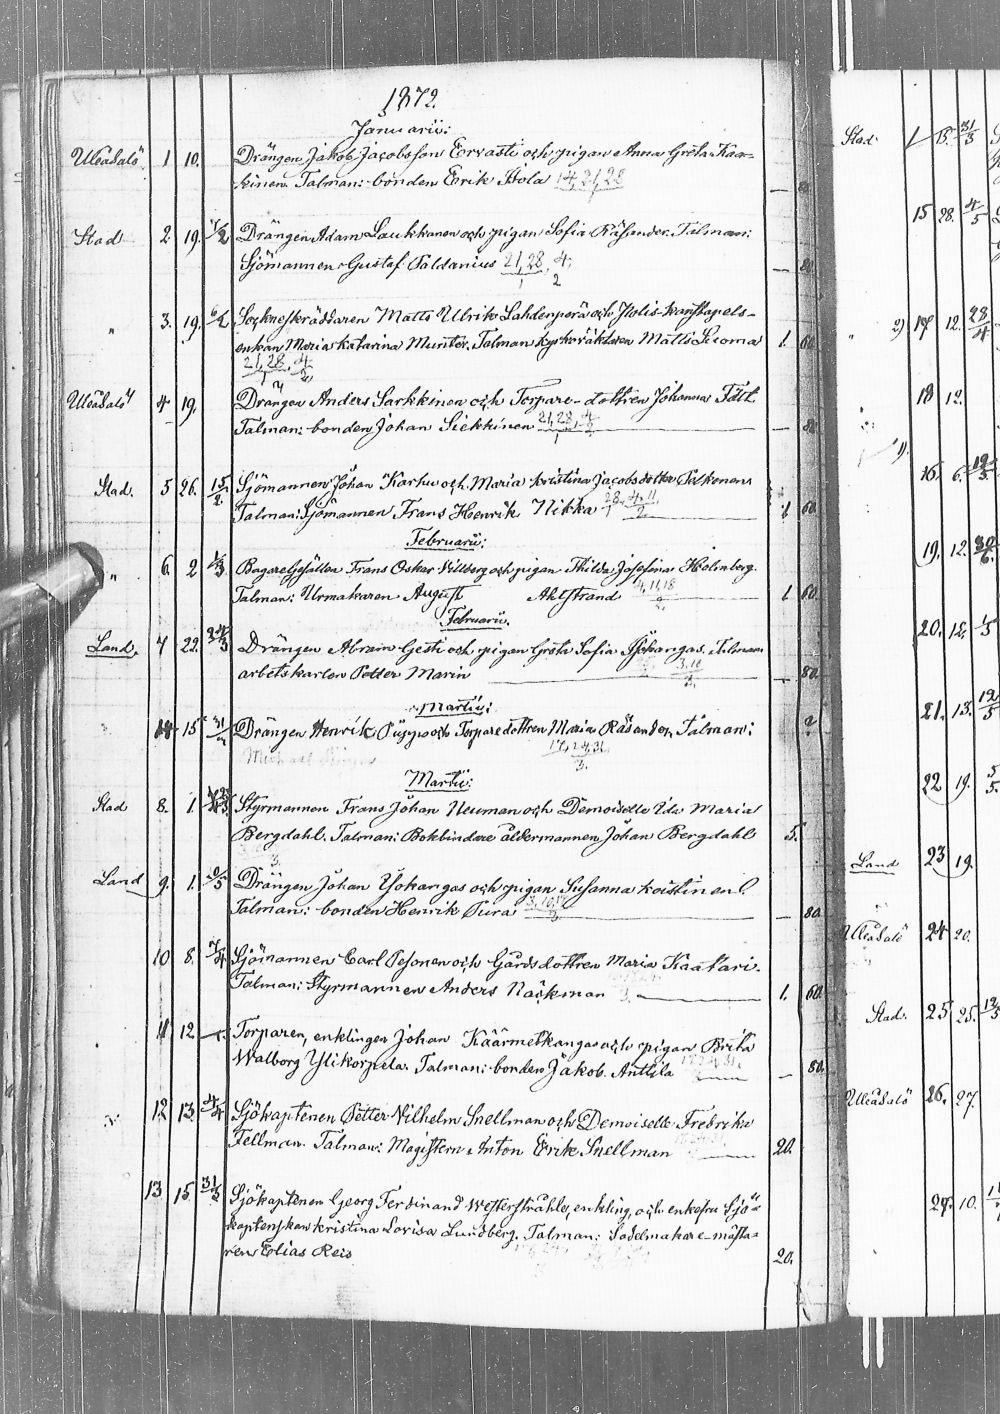 1872.
Januarii:
Uleåsalo 1 10. Drängen Jakob Jacobsson Ervasti och pigan Anna Greta Kaa-
kinen. Talman: bonden Erik Hola 14, 21, 28 — 80.
Stad 2. 19. Drängen Adam Laukkanen och pigan Sofia Räsander. Talman:
Sjömannen Gustaf Paldanius 21, 28, 4 — 80.
" 3. 19. Sockneskräddaren Matts Ulrik Lahdenperä och
enkan Maria Katarina Munter. Talman kyrkoväktaren Matts Luoma 1. 60.
21, 28, 4
Uleåsalo 4 19. Drängen Anders Sarkkinen och Torpare-dottren Johanna Fält
Talman: bonden Johan Siekkinen 21, 28, 4 — 80.
Stad. 5 26. 15/2. Sjömannen Johan Karhu och Maria Kristina Jacobsdotter Palkonen
Talman: Sjömannen Frans Henrik Nikka 28, 4, 11 1 60.
Februarii:
" 6. 2 Bagaregesällen Frans Oskar Villberg och pigan Thilda Josefina Holmberg.
Talman: Urmakaren August Ahlstrand 4, 11, 18 1. 60.
Februarii.
Land. 7 22. 24/3 Drängen Abram Gesti och pigan Greta Sofia Yökangas. Talman
arbetskarlen Petter Marin — 80.
Martii:
14 15 Drängen Henrik och Torparedottren Maria Räsander, Talman:
17, 24, 31
3.
Martii:
Stad 8. 1. Styrmannen Frans Johan Neuman och Demoiselle Ida Maria
Bergdahl. Talman: Bokbindare åldermannen Johan Bergdahl 5.
Land 9. 1. Drängen Johan Yökangas och pigan Susanna Koistinen.
Talman: bonden Henrik Pura 3, 10, 17 — 80.
10 8. 7/4 Sjömannen Carl Pesonen och Gårdsdottren Maria Kaatari.
Talman: Styrmannen Anders Nackman 1. 60.
11 12 Torparen, enklingen Johan Käärmetkangas och pigan Brita
Walborg Ylikorpela. Talman: bonden Jakob Anttila — 80.
12 13. 4/4 Sjökaptenen Petter Vilhelm Snellman och Demoiselle Fredrika
Fellman. Talman: Magistern Anton Erik Snellman 20.
13 15 31/3 Sjökaptenen Georg Ferdinand Westerstråhle, enkling, och enkefru Sjö-
kaptenskan Kristina Lovisa Lundberg. Talman: Sadelmakare-mästa-
ren Elias Reis 20.
Stad. 15. 31/3
15 28. 4/5
" 2) 17 12. 28/4
18 12.
16. 6. 19/5
19. 12. 30/6
20. 12.
21. 13. 12/5
22 19. 5/5.
Land 23 19.
Uleåsalo 24 20.
Stad. 25 25. 12/5
Uleåsalo 26. 27.
27. 10.